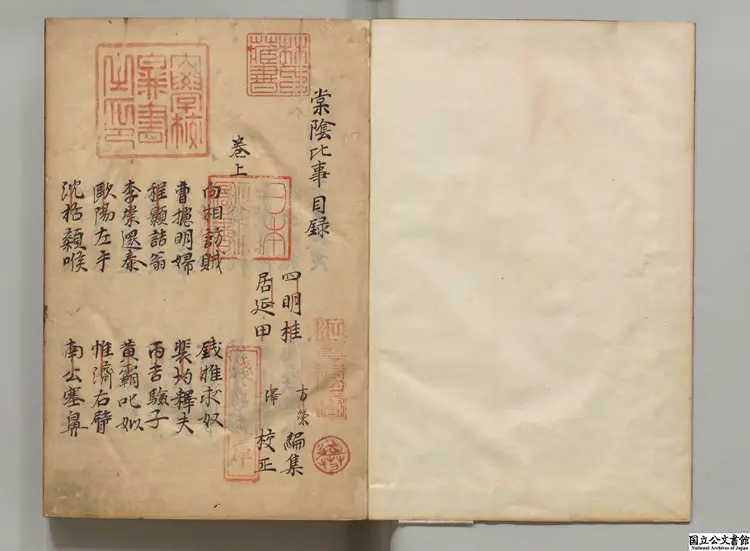 棠陰比事目録
四明桂 万榮 編集
居延田 澤 校正
巻上
向相訪賊 錢推求奴
曹攄明婦 裴均釋夫
程顥詰翁 丙吉驗子
李崇還泰 黄霸叱姒
歐陽左手 惟濟右臂
沈括顙喉 南公塞鼻
林氏藏書
大學校圖書之印
日本
國立公文書館
National Archives of Japan